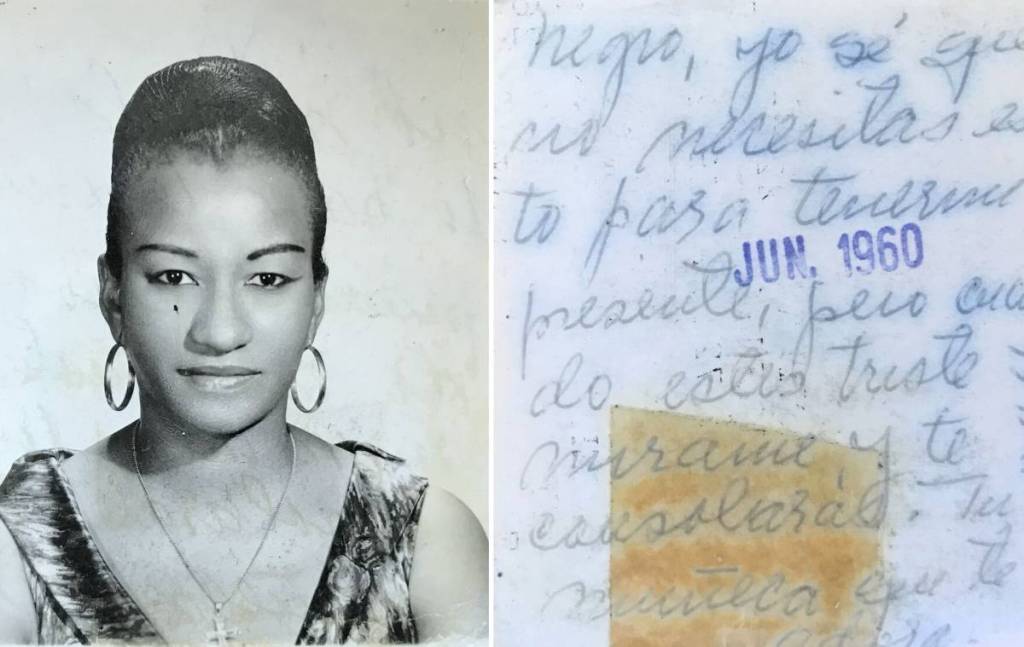 negro, yo sé que
no necesitas es
to para tenerme
JUN. 1960
presente, pero cuan
do estés triste
mirame, y te
consolarás. Tu
muñeca que te
adora.